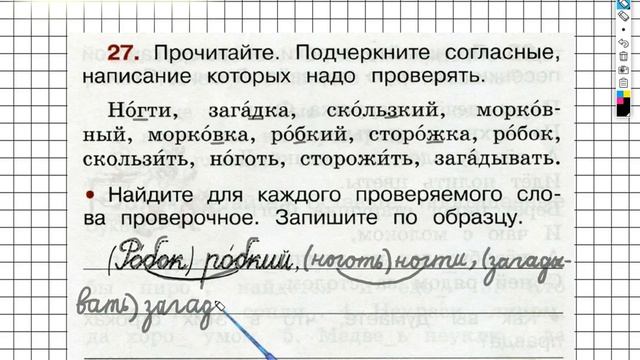 27. Прочитайте. Подчеркните согласные,
написание которых надо проверять.
Но́гти, зага́дка, ско́льзкий, морко́в-
ный, морко́вка, ро́бкий, сторо́жка, ро́бок,
скользи́ть, но́готь, сторожи́ть, зага́дывать.
• Найдите для каждого проверяемого сло-
ва проверочное. Запишите по образцу.
(Робок) ро́бкий, (ноготь) ногти, (загады-
вать) загад